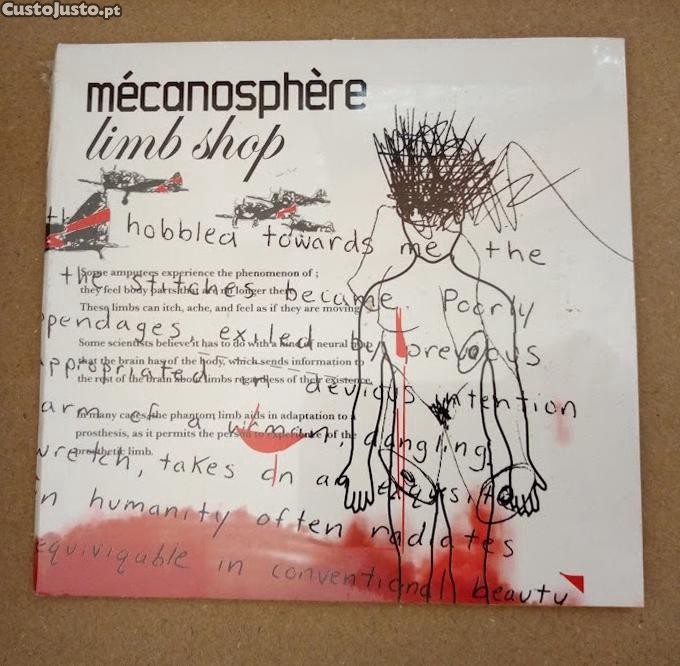 CustoJusto.pt
mécanosphère
limb shop
hobbled towards me, the
Some amputees experience the phenomenon of ;
the stitches became Poorly
they feel body parts that are no longer there.
These limbs can itch, ache, and feel as if they are moving
pendages exiled by previous
Some scientists believe it has to do with a kind of neural map
that the brain has of the body, which sends information to
ppropriated devious intention
the rest of the brain about limbs regardless of their existence.
arm of a woman, dangling
In many cases the phantom limb aids in adaptation to a
prosthesis, as it permits the person to experience of the
prosthetic limb.
wretch, takes on an exquisite
in humanity often radiates
equiviqable in conventional beauty